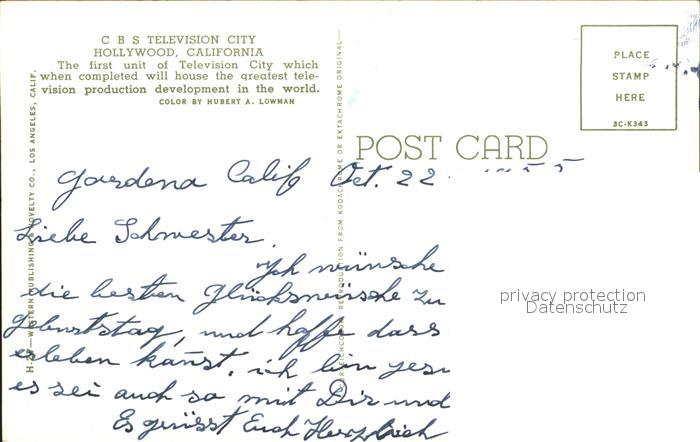 C B S TELEVISION CITY
HOLLYWOOD, CALIFORNIA
The first unit of Television City which
when completed will house the greatest tele-
vision production development in the world.
COLOR BY HUBERT A. LOWMAN
PLACE
STAMP
HERE
3C-K343
POST CARD
WESTERN PUBLISHING & NOVELTY CO., LOS ANGELES, CALIF.
REPRODUCTION FROM KODACHROME OR EKTACHROME ORIGINAL
Gardena Calif Oct. 22. 1955
Liebe Schwester.
Ich wünsche
die besten Glückswüsche zu
Geburtstag, und hoffe dass
erleben kanst, ich bin gesu
es sei auch so mit Dir und
Es grüsst Euch Herzlich
privacy protection
Datenschutz